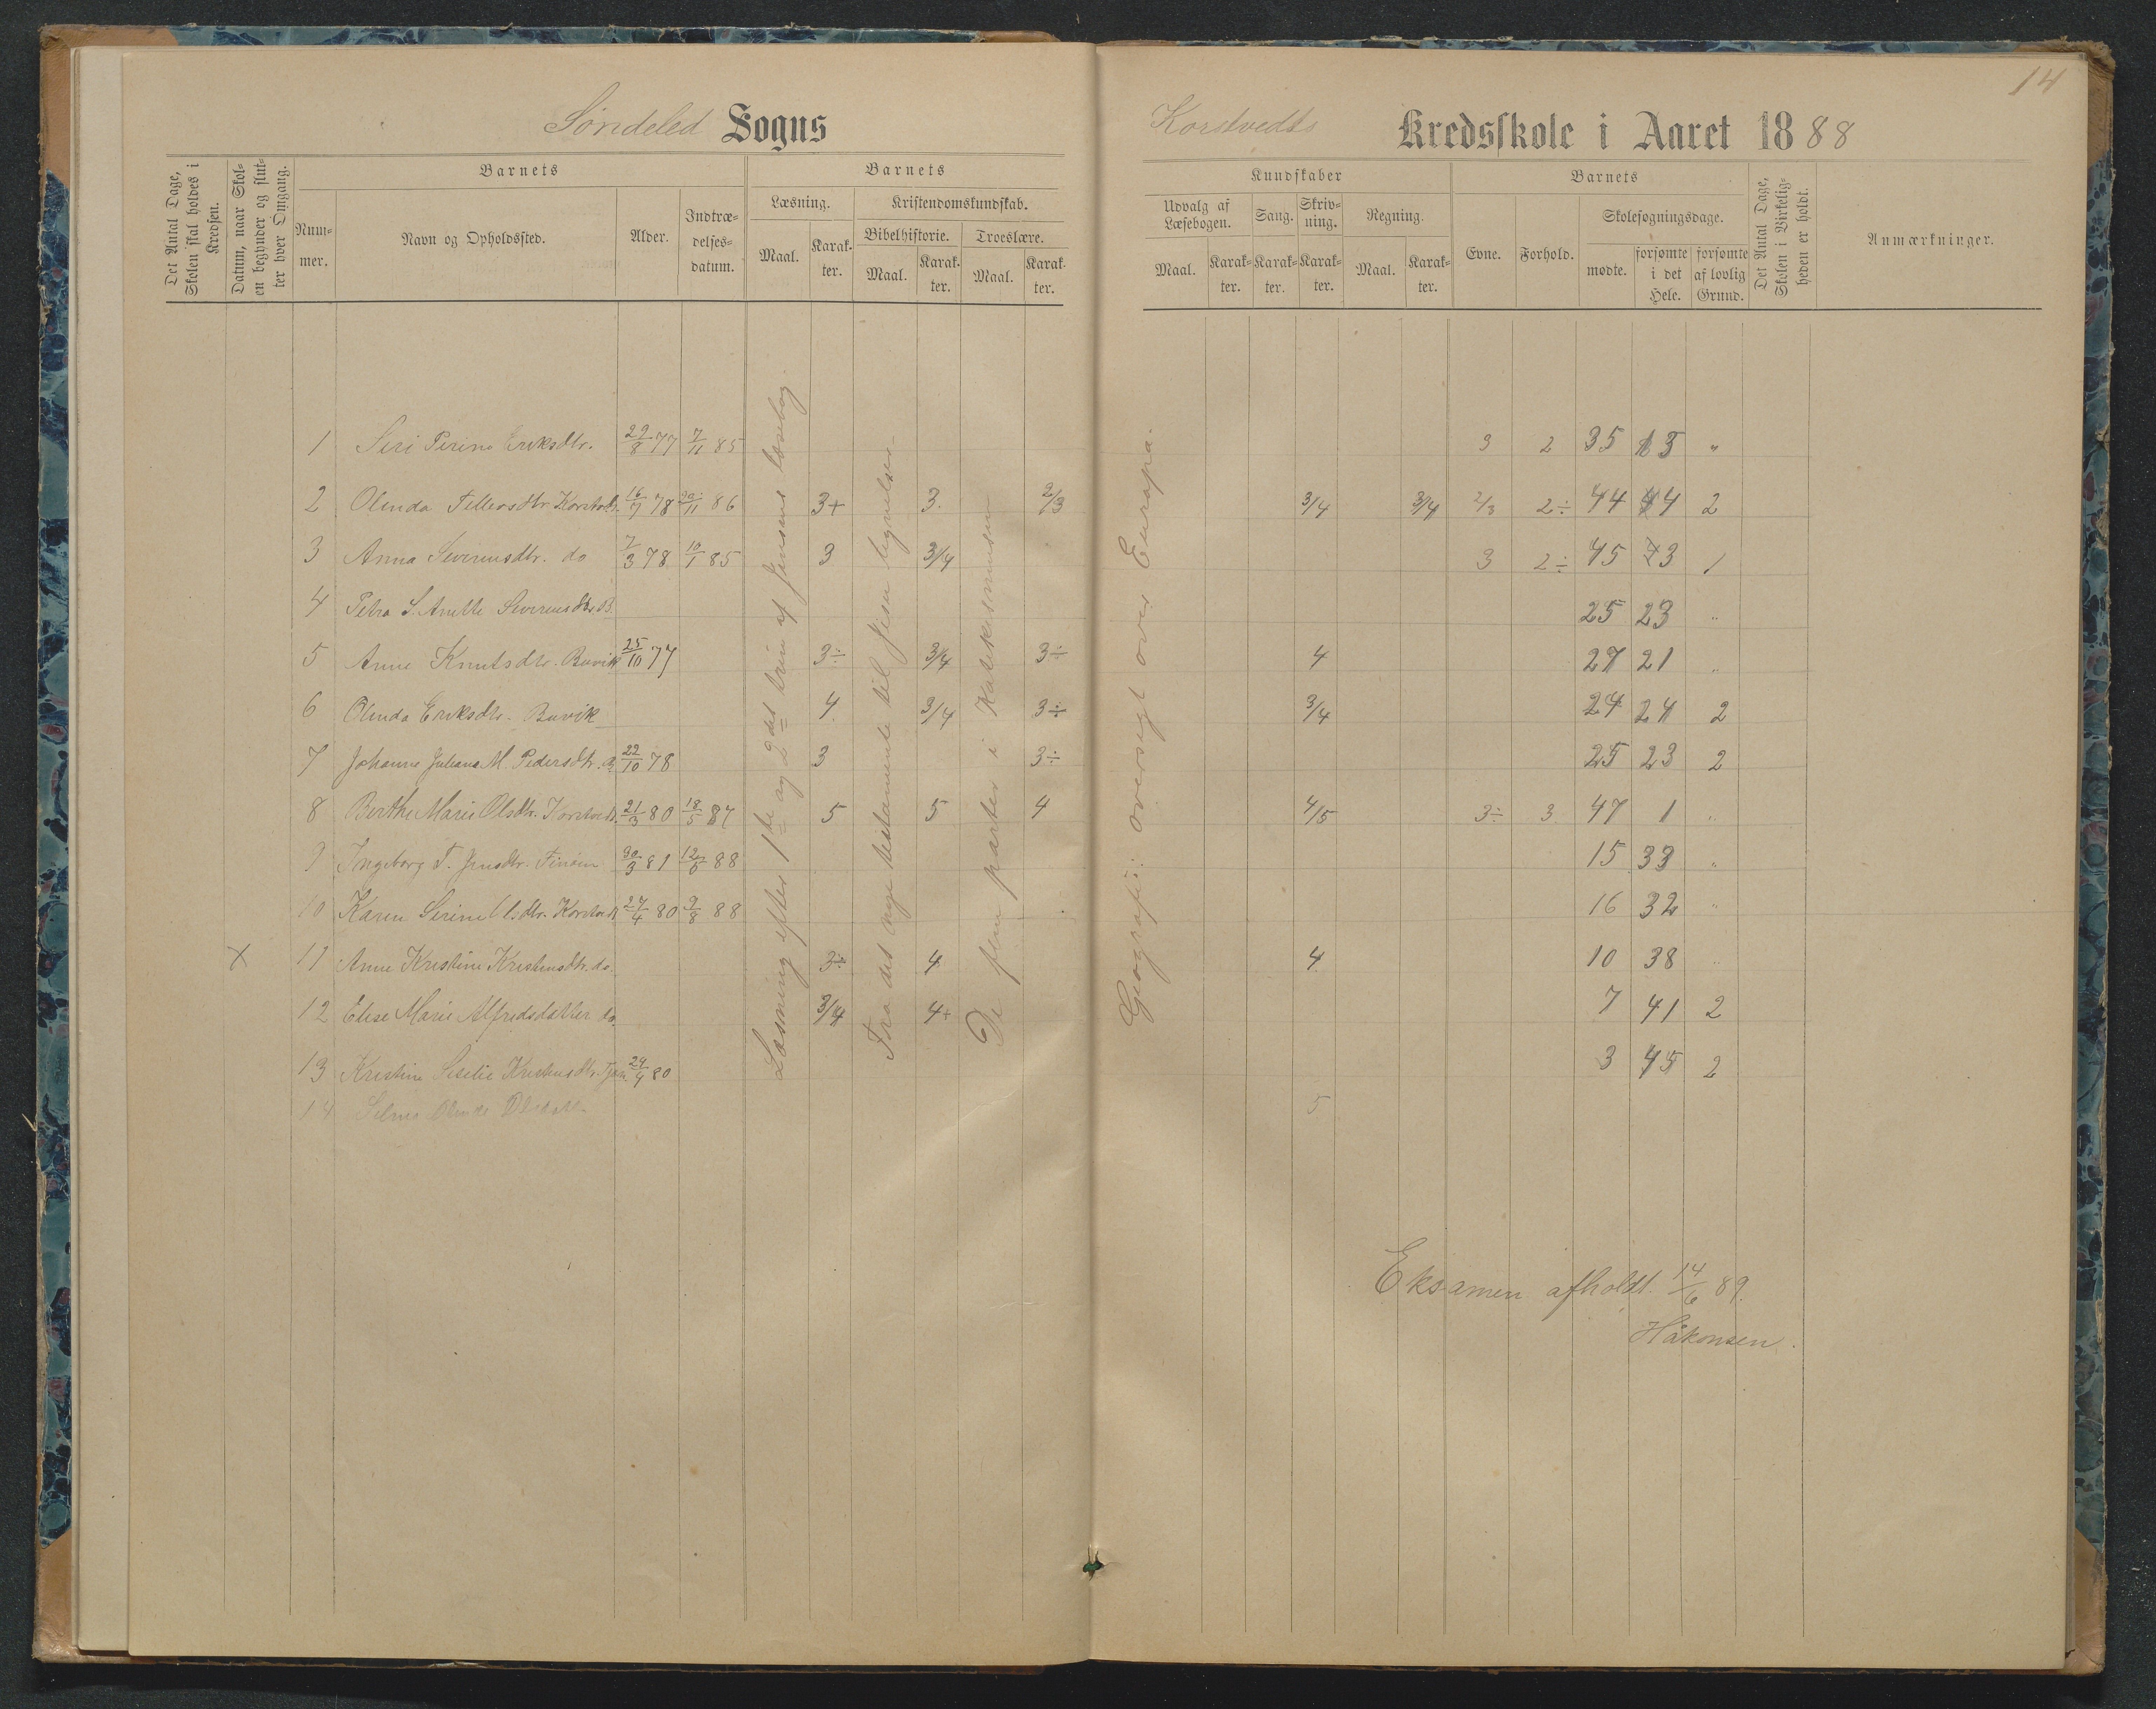 14
Søndeled Sogns
Korstvedts Kredsskole i Aaret 1888
Det Antal Dage, Skolen skal holdes i Kredsen.
Datum, naar Skolen begynder og slutter hver Omgang.
Barnets
Nummer.
Navn og Opholdssted.
Alder.
Indtrædelsesdatum.
Barnets
Læsning.
Maal.
Karakter.
Kristendomskundskab.
Bibelhistorie.
Maal.
Karakter.
Troeslære.
Maal.
Karakter.
Kundskaber
Udvalg af Læsebogen.
Maal.
Karakter.
Sang.
Karakter.
Skrivning.
Karakter.
Regning.
Maal.
Karakter.
Barnets
Evne.
Forhold.
Skolesøgningsdage.
mødte.
forsømte i det Hele.
forsømte af lovlig Grund.
Det Antal Dage, Skolen i Virkeligheden er holdt.
Anmærkninger.
1 Siri Perine Eriksdtr. 29/8 77 7/11 85 3 2 35 13 "
2 Olinda Tellersdtr Korstvedt. 16/7 78 30/11 86 3+ 3. 2/3 3/4 3/4 2/3 2÷ 44 4 2
3 Anna Severinsdtr. do 7/3 78 10/1 85 3 3/4 3 2÷ 45 3 1
4 Petra S. Anette Severinsdtr B. 25 23 "
5 Anne Knutsdtr. Buvik 25/10 77 3÷ 3/4 3÷ 4 27 21 "
6 Olinda Eriksdtr. Buvik 4 3/4 3÷ 3/4 24 24 2
7 Johanne Juliana M. Pedersdtr. 22/10 78 3 3÷ 25 23 2
8 Berthe Marie Olsdtr. Korstvedt. 21/3 80 18/5 87 5 5 4 4/5 3÷ 3 47 1 "
9 Ingeborg T. Jensdtr. 30/3 81 12/5 88 15 33 "
10 Karen Serine Olsdtr. Korstvedt 24/4 80 9/8 88 16 32 "
x 11 Anne Kristine Kristensdtr. do 3÷ 4 4 10 38 "
12 Elise Marie Alfredsdatter do 3/4 4+ 7 41 2
13 Kristine Sesilie Kristensdtr. 29/4 80 3 45 2
14 Selma Olinde 5
Læsning efter 1ste og 2det trin af Jensens læsebog.
Fra det nye testamente til Jesu lignelser
De fem parter i Katekismusen
Geografi: oversigt over Europa.
Eksamen afholdt. 14/6 89.
Håkonsen.